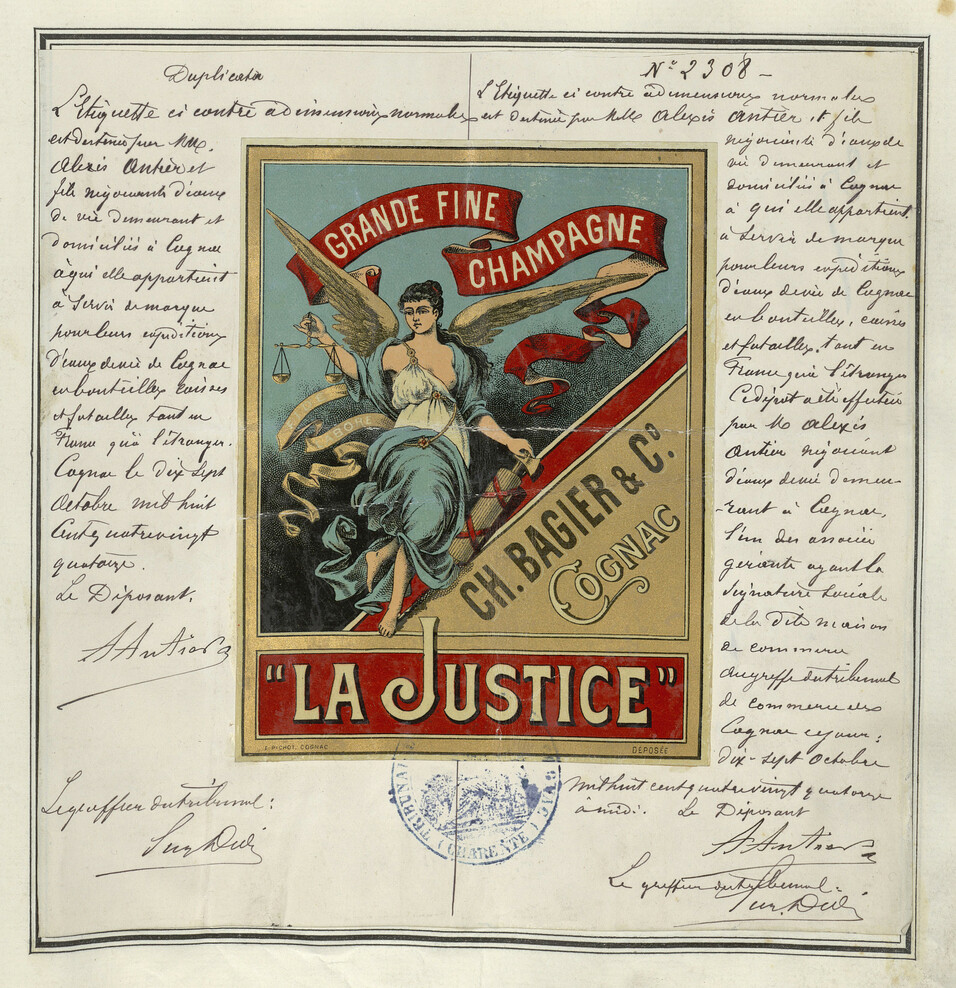 Duplicata
L'Etiquette ci contre a dimensions normales
est destinée par MM.
Alexis Antier et
fils négociants d'eaux
de vie demeurant et
domiciliés à Cognac
à qui elle appartient
à Servir de marque
pour leurs expéditions
d'eaux de vie de Cognac
en bouteilles caisses
et futailles tant en
France qu'à l'étranger.
Cognac le dix sept
Octobre mil huit
Cent quatre vingt
quatorze.
Le Déposant.
A Antier
Le greffier du tribunal:
N° 2308 -
L'Etiquette ci contre a dimensions normales
est destinée par MM Alexis Antier et fils
négociants d'eaux de
vie demeurant et
domiciliés à Cognac
à qui elle appartient,
à Servir de marque
pour leurs expéditions
d'eaux de vie de Cognac
en bouteilles, caisses
et futailles, tant en
France qu'à l'étranger
Ce dépôt a été effectué
par M Alexis
Antier négociant
d'eaux de vie demeu-
-rant à Cognac,
l'un des associés
gérants ayant la
signature sociale
de la dite maison
de commerce
au greffe du tribunal
de commerce de
Cognac ce jour:
dix-sept Octobre
mil huit cent quatre vingt quatorze
à midi. Le Déposant
A Antier
Le greffier du tribunal:
GRANDE FINE
CHAMPAGNE
LABORE
CH. BAGIER & C°.
COGNAC
"LA JUSTICE"
J. PICHOT, COGNAC
DÉPOSÉE
TRIBUNAL
(CHARENTE)